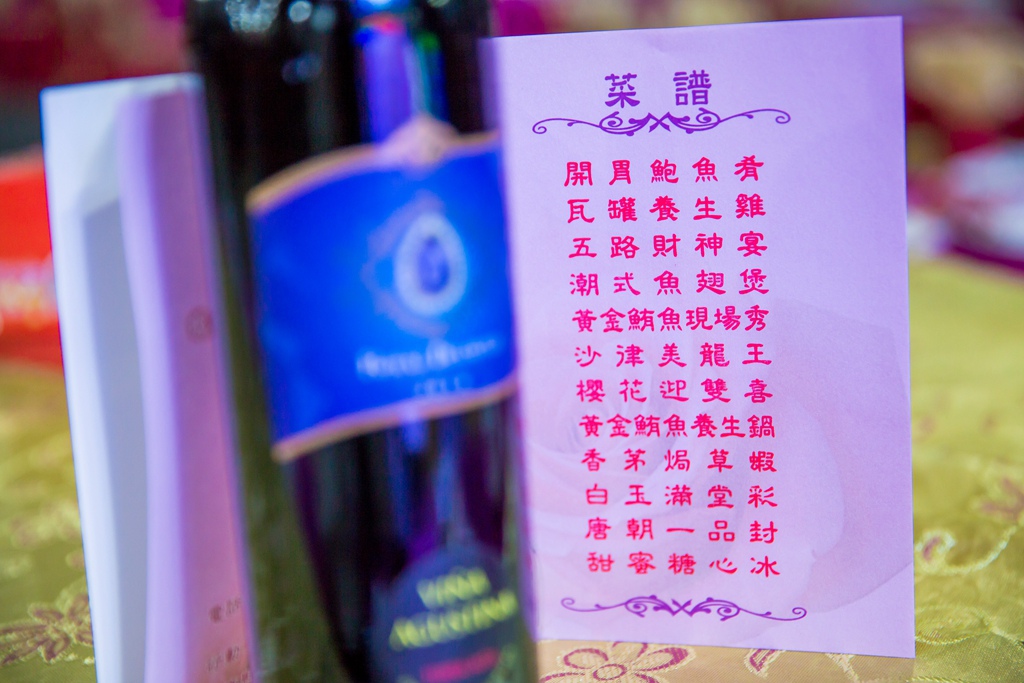 菜譜
開胃鮑魚肴
瓦罐養生雞
五路財神宴
潮式魚翅煲
黃金鮪魚現場秀
沙律美龍王
櫻花迎雙喜
黃金鮪魚養生鍋
香茅焗草蝦
白玉滿堂彩
唐朝一品封
甜蜜糖心冰
VIÑA
AGUSTINA